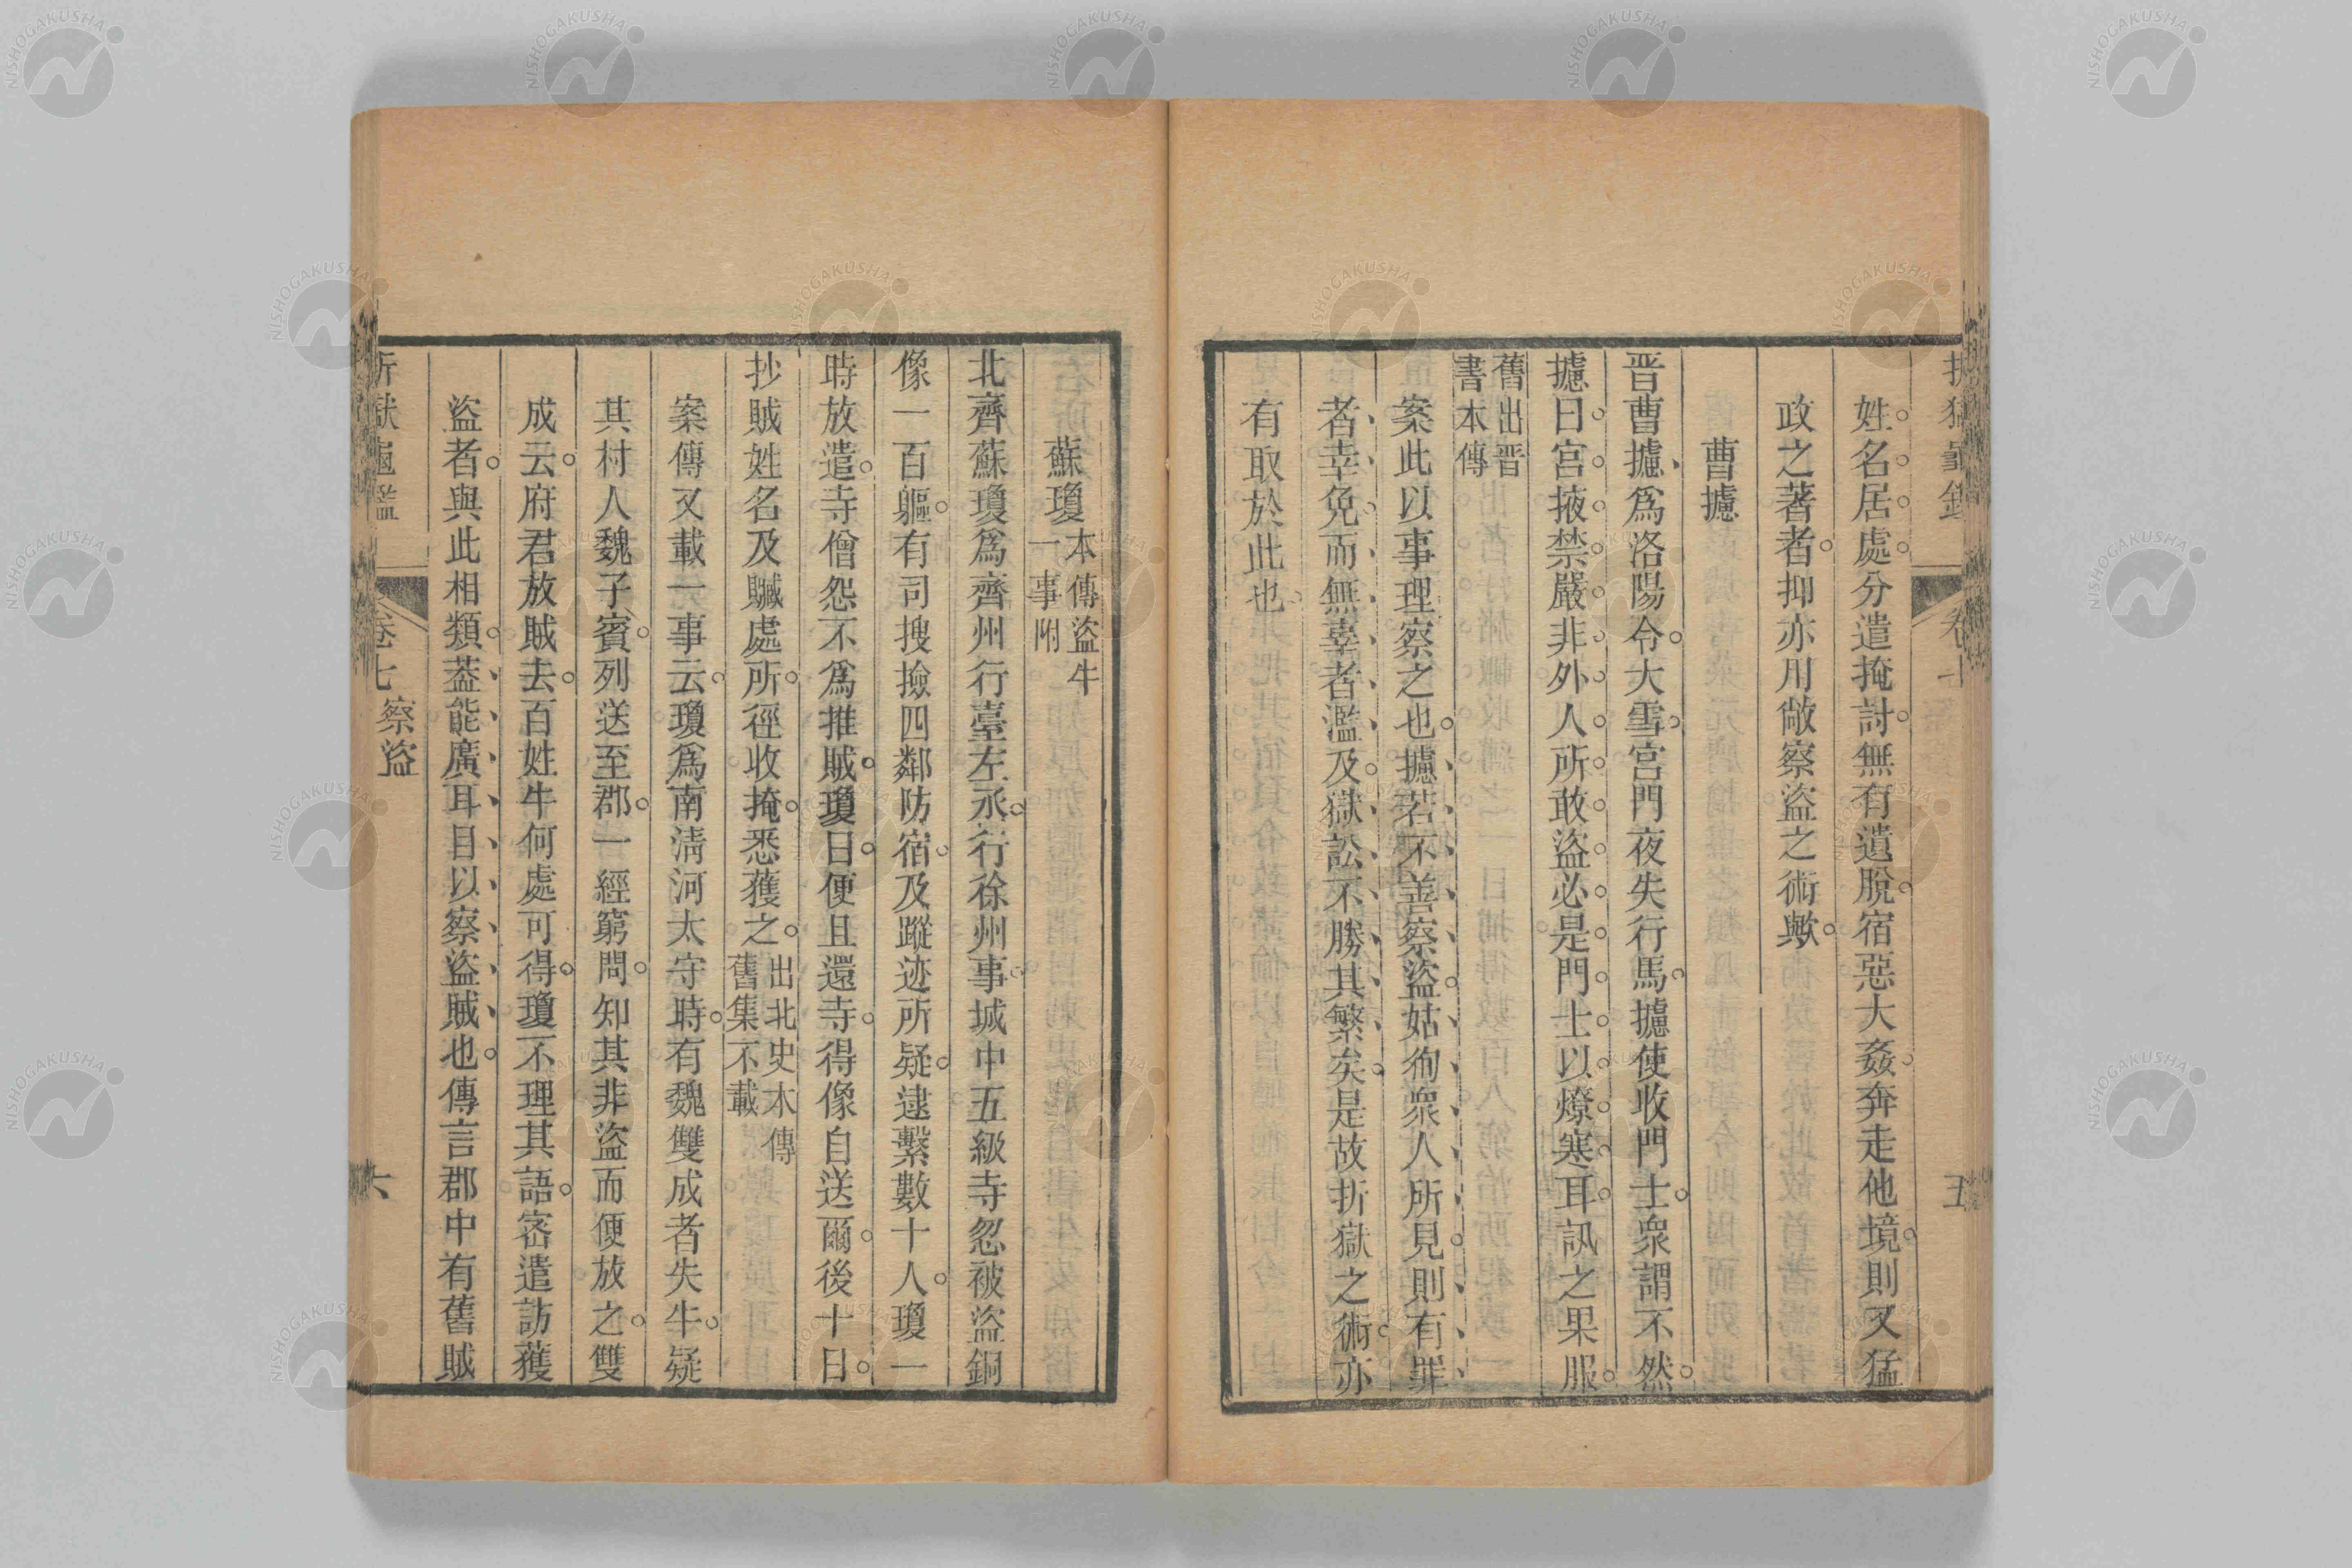 姓名居處分遣掩討無有遺脫宿惡大姦奔走他境則又猛
政之著者抑亦用敞察盜之術歟
曹攄
晉曹攄爲洛陽令大雪宮門夜失行馬攄使收門士衆謂不然
攄曰宮掖禁嚴非外人所敢盜必是門士以燎寒耳訊之果服
舊出晉
書本傳
案此以事理察之也攄若不善察盜姑徇衆人所見則有罪
者幸免而無辜者濫及獄訟不勝其繁矣是故折獄之術亦
有取於此也
蘇瓊
本傳盜牛
一事附
北齊蘇瓊爲齊州行臺左丞行徐州事城中五級寺忽被盜銅
像一百軀有司搜撿四鄰防宿及蹤迹所疑逮繫數十人瓊一
時放遣寺僧怨不爲推賊瓊曰便且還寺得像自送爾後十日
抄賊姓名及贓處所徑收掩悉獲之
出北史本傳
舊集不載
案傳又載一事云瓊爲南清河太守時有魏雙成者失牛疑
其村人魏子賓列送至郡一經窮問知其非盜而便放之雙
成云府君放賊去百姓牛何處可得瓊不理其語密遣訪獲
盜者與此相類葢能廣耳目以察盜賊也傳言郡中有舊賊
折獄龜鑑
卷七 察盜
六
NISHOGAKUSHA